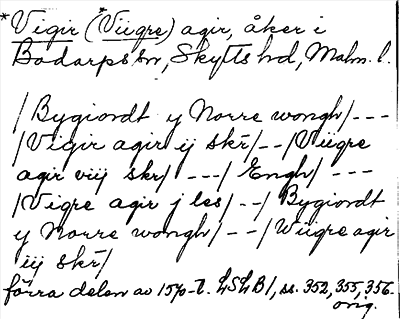 *Vigir (*Viigre) agir, åker i
Bodarps sn, Skytts hd, Malm. l.
/Bygiordt y Norre wongh/---
/Vigir agir ij skr/--/Viigre
agir viij skr/ ---/ Engh/ ---
/Vigre agir j les/--/Bygiordt
y Norre wongh/ --/Wiigre agir
iij skr/
förra delen av 1570-t. LSLB1, ss. 352, 355, 356.
orig.